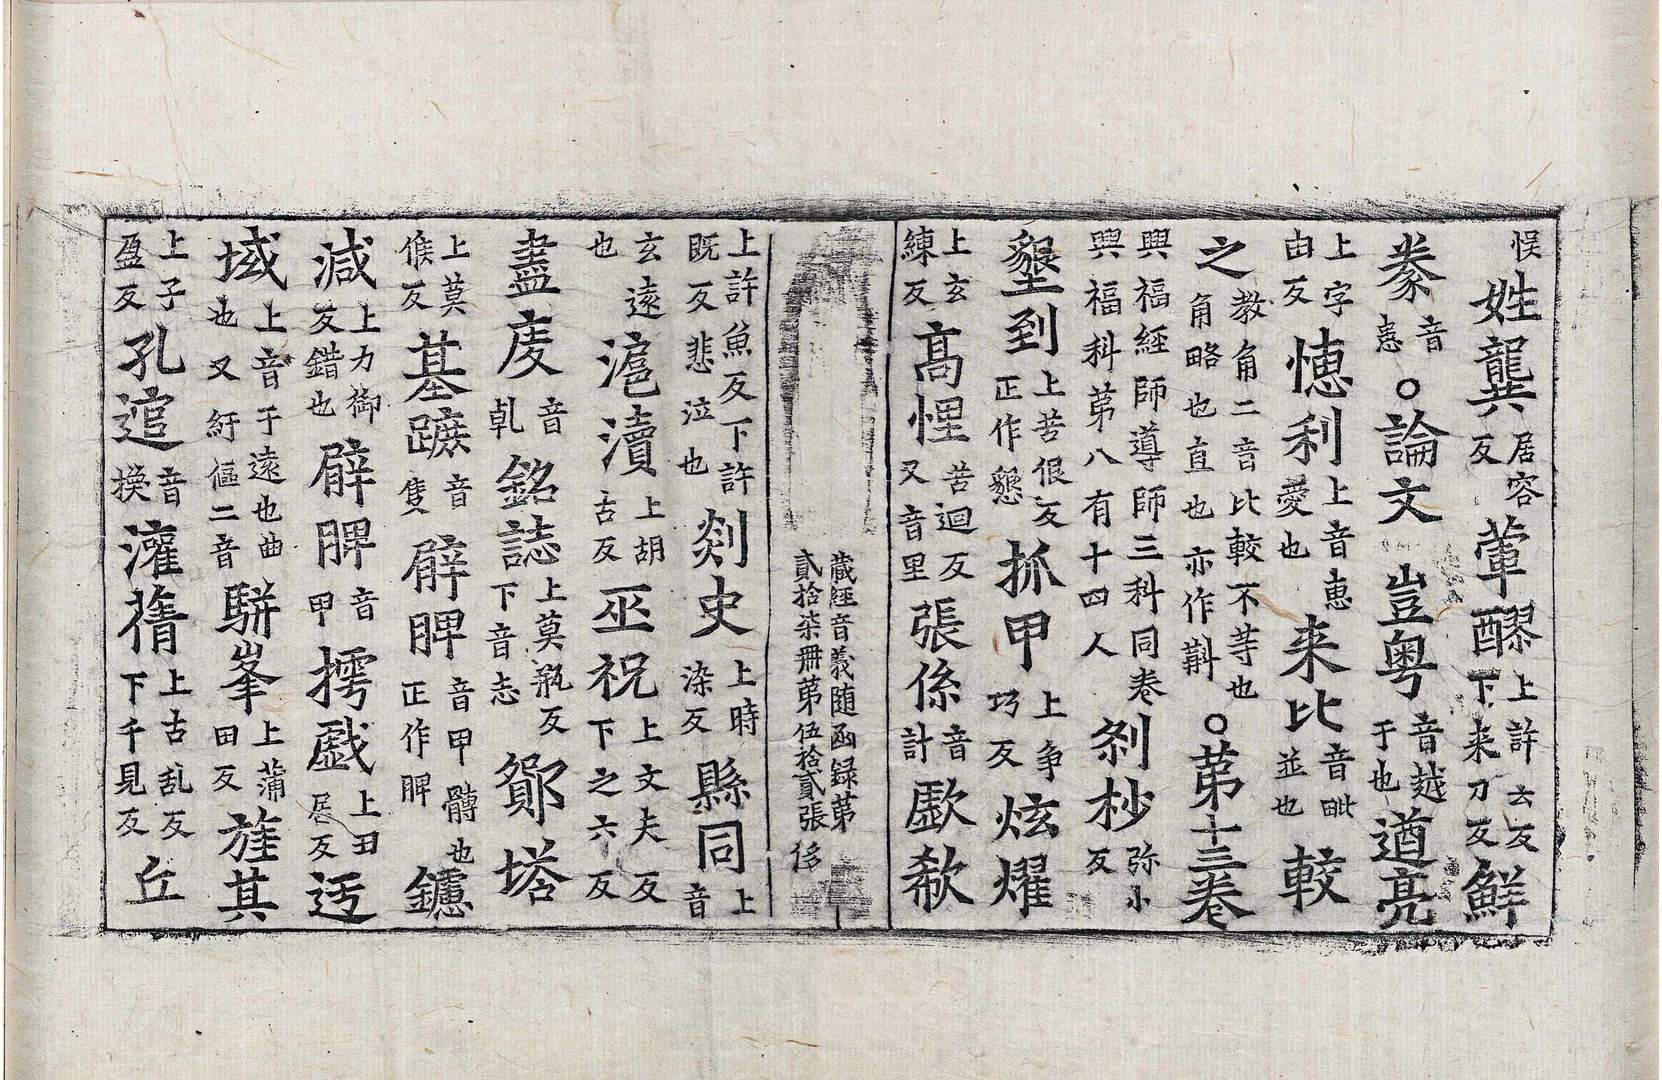 悮姓龔居容反葷醪上許云反下来刀反鮮
豢音患○論文豈粤音越于也遒亮
上字由反憓利上音恵愛也来比音毗並也較
之教角二音比較不等也角略也直也亦作斠○第十三卷
興福經師導師三科同卷興福科苐八有十四人剎杪弥小反
墾到上苦佷反正作懇抓甲上争巧反炫燿
上玄練反髙悝苦迴反又音里張係音計歔欷
藏經音義随函録苐貳拾柒冊苐伍拾貳張侈
上許魚反下許既反悲泣也剡史上時染反縣同上音
玄遠也滬瀆上胡古反巫祝上文夫反下之六反
盡虔音乹銘誌上莫瓶反下音志鄮塔
上莫候反基蹠音隻髀胛音甲髆也正作胛鑢
減上力御反錯也髀胛音甲摴戯上丑居反迃
堿上音于遠也曲也又紆傴二音駢峯上蒲田反旌其
上子盈反孔逭音換灌蒨上古乱反下千見反丘